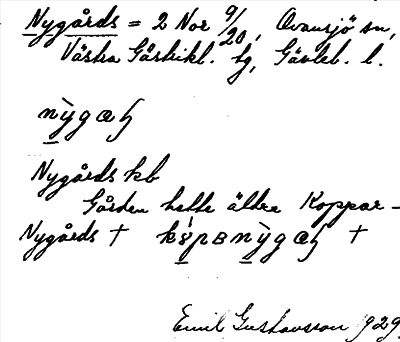 Nygårds = 2 Nor 9/20, Ovansjö sn,
Västra Gästrikl. hg, Gävleb. l.
nỳgaʒ
Nygårds kb
Gården hette äldre Koppar-
Nygårds †
†
Emil Gustavsson 1929